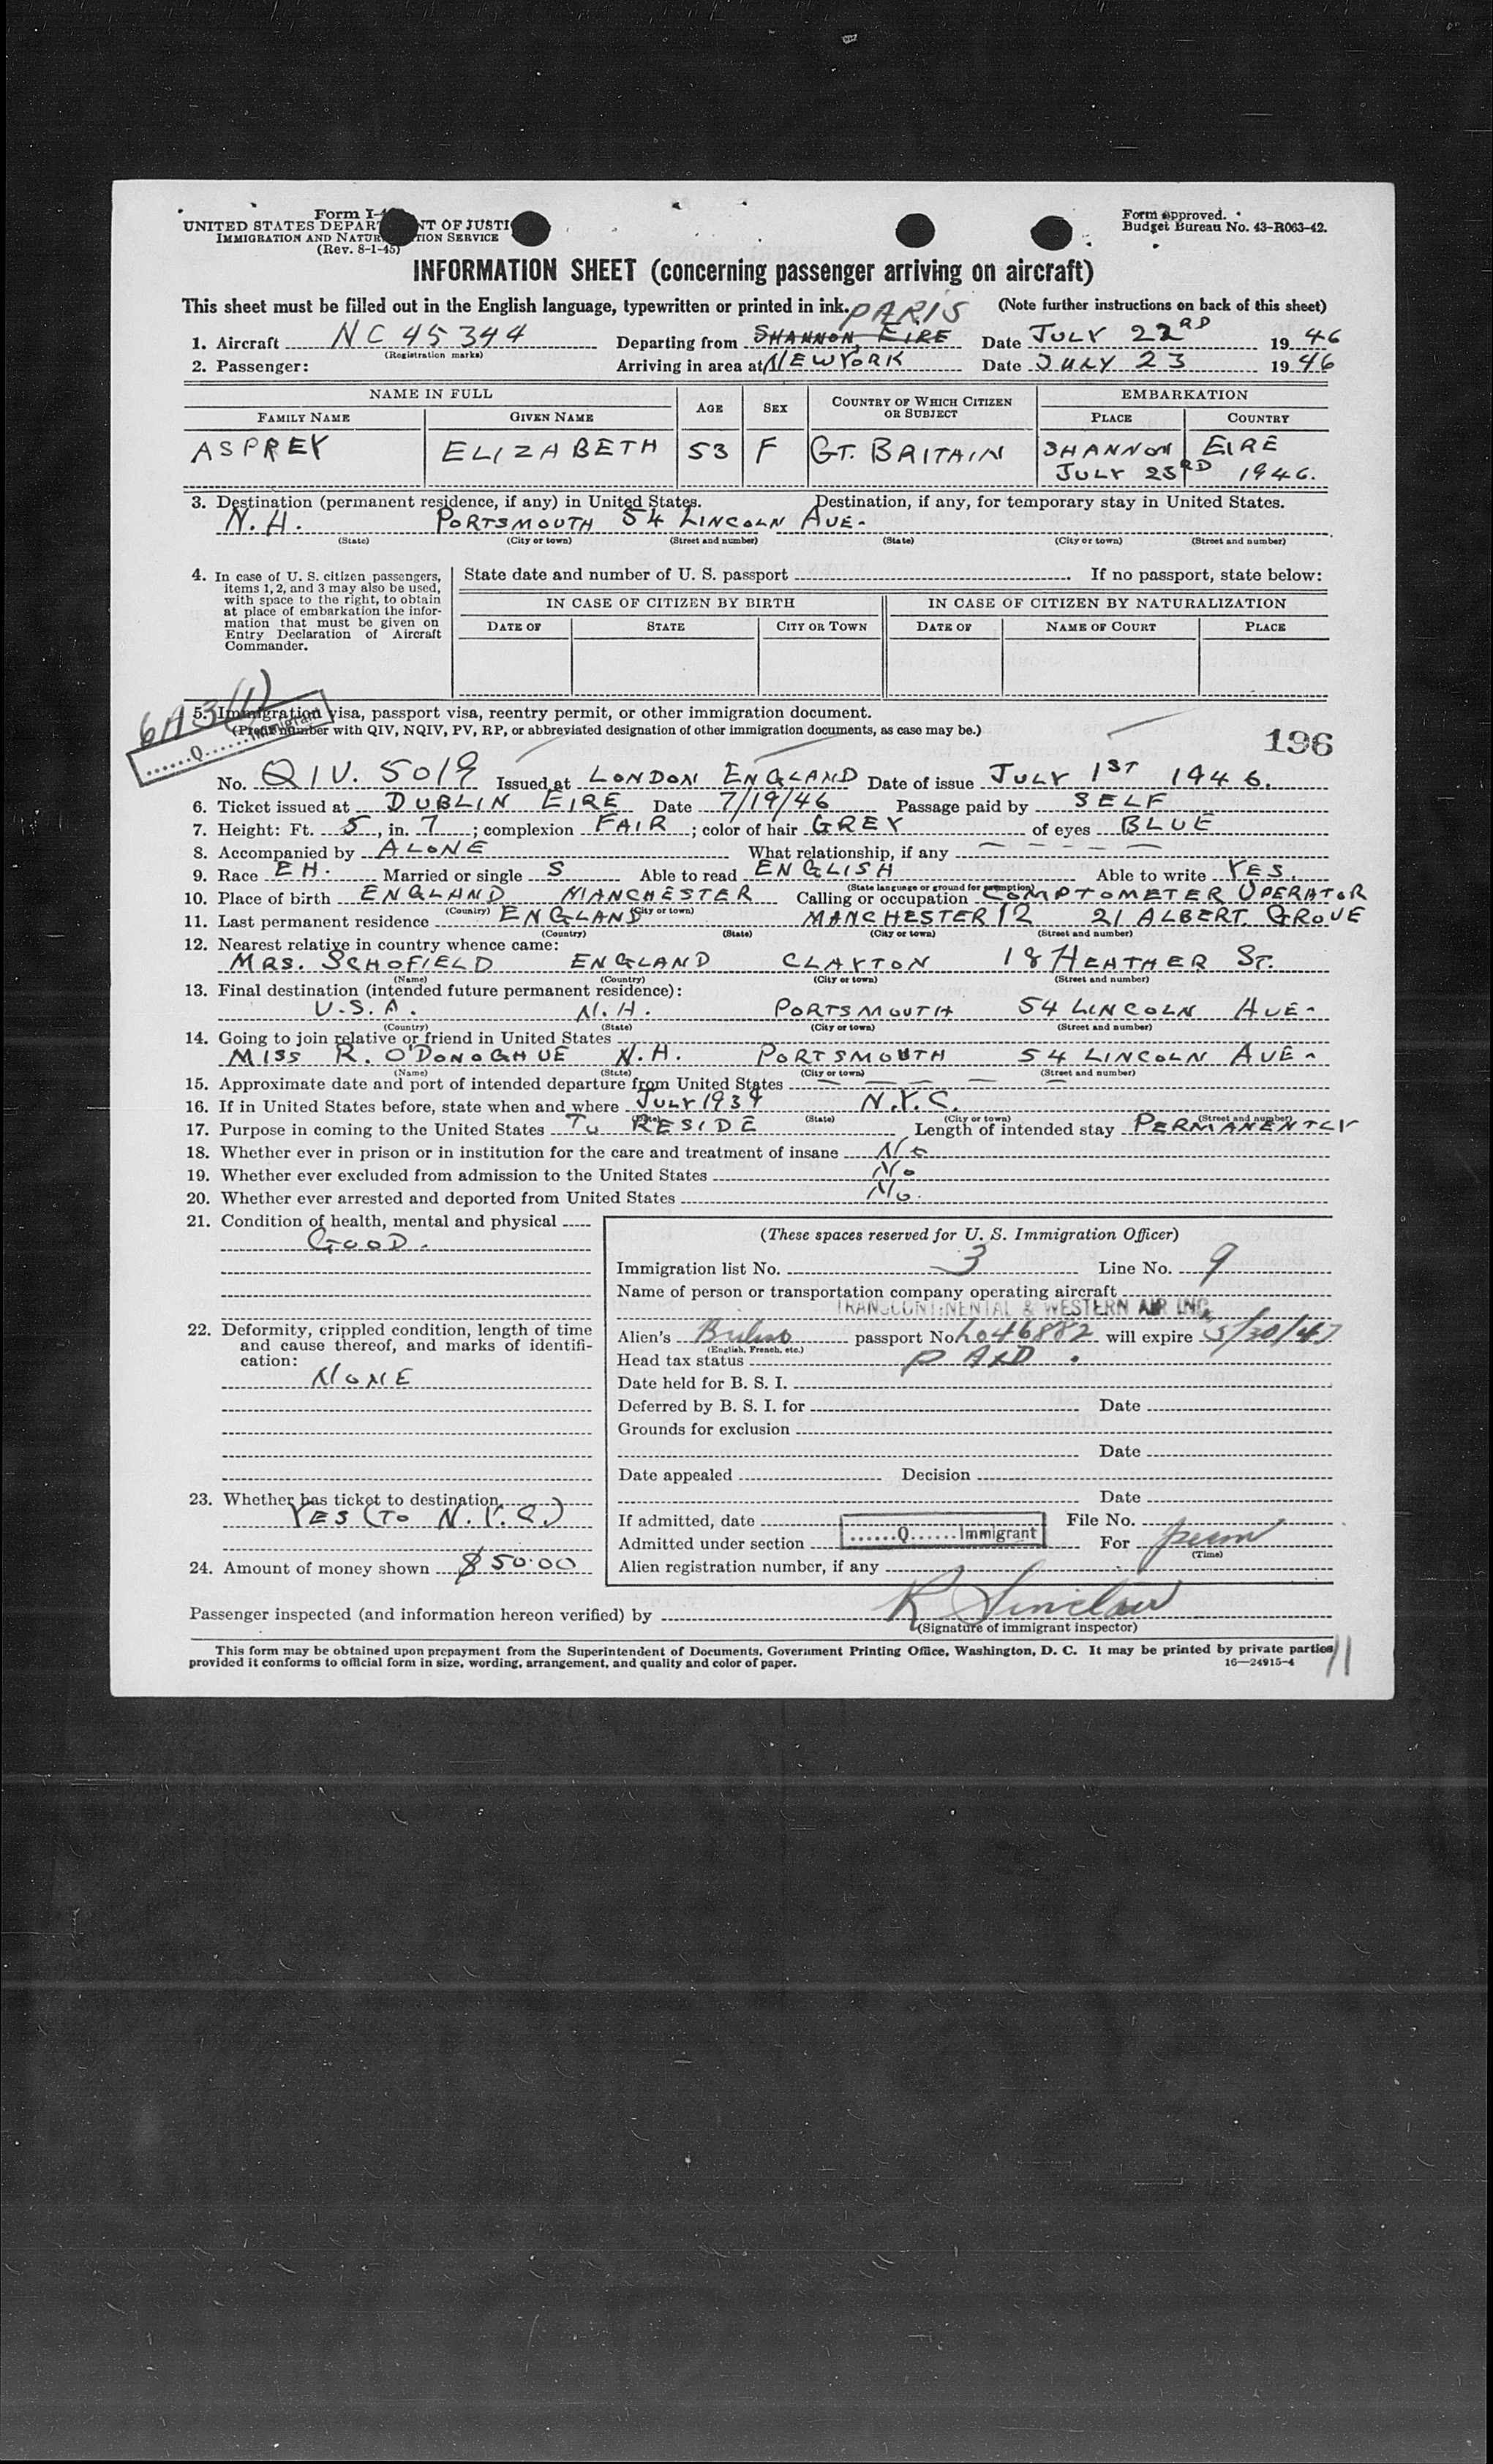 Form I-4
UNITED STATES DEPAR NT OF JUSTI
IMMIGRATION AND NATUR TION SERVICE
(Rev. 8-1-45)
Form approved.
Budget Bureau No. 43-R063-42.
INFORMATION SHEET (concerning passenger arriving on aircraft)
This sheet must be filled out in the English language, typewritten or printed in ink. (Note further instructions on back of this sheet)
PARIS
1. Aircraft NC 45344 Departing from SHANNON, EIRE Date JULY 22RD 1946
(Registration marks)
2. Passenger: Arriving in area at NEW YORK Date JULY 23 1946
NAME IN FULL AGE SEX COUNTRY OF WHICH CITIZEN OR SUBJECT EMBARKATION
FAMILY NAME GIVEN NAME PLACE COUNTRY
ASPREY ELIZABETH 53 F GT. BRITAIN SHANNON EIRE
JULY 23RD 1946.
3. Destination (permanent residence, if any) in United States. Destination, if any, for temporary stay in United States.
N.H. PORTSMOUTH 54 LINCOLN AVE.
(State) (City or town) (Street and number) (State) (City or town) (Street and number)
4. In case of U. S. citizen passengers, items 1, 2, and 3 may also be used, with space to the right, to obtain at place of embarkation the information that must be given on Entry Declaration of Aircraft Commander.
State date and number of U. S. passport If no passport, state below:
IN CASE OF CITIZEN BY BIRTH IN CASE OF CITIZEN BY NATURALIZATION
DATE OF STATE CITY OR TOWN DATE OF NAME OF COURT PLACE
6A3(1)
......Q......Immigrant
5. Immigration visa, passport visa, reentry permit, or other immigration document.
(Prefix number with QIV, NQIV, PV, RP, or abbreviated designation of other immigration documents, as case may be.)
196
No. QIV. 5019 Issued at LONDON ENGLAND Date of issue JULY 1ST 1946.
6. Ticket issued at DUBLIN EIRE Date 7/19/46 Passage paid by SELF
7. Height: Ft. 5, in. 7; complexion FAIR; color of hair GREY of eyes BLUE
8. Accompanied by ALONE What relationship, if any — — — — —
9. Race EH. Married or single S Able to read ENGLISH Able to write YES.
(State language or ground for exemption)
10. Place of birth ENGLAND MANCHESTER Calling or occupation COMPTOMETER OPERATOR
(Country) (City or town)
11. Last permanent residence ENGLAND MANCHESTER 12 21 ALBERT. GROVE
(Country) (State) (City or town) (Street and number)
12. Nearest relative in country whence came:
MRS. SCHOFIELD ENGLAND CLAYTON 18 HEATHER ST.
(Name) (Country) (City or town) (Street and number)
13. Final destination (intended future permanent residence):
U.S.A. N.H. PORTSMOUTH 54 LINCOLN AVE-
(Country) (State) (City or town) (Street and number)
14. Going to join relative or friend in United States
MISS R. O'DONOGHUE N.H. PORTSMOUTH 54 LINCOLN AVE-
(Name) (State) (City or town) (Street and number)
15. Approximate date and port of intended departure from United States — — — — —
16. If in United States before, state when and where JULY 1939 N.Y.C.
(Date) (State) (City or town) (Street and number)
17. Purpose in coming to the United States TO RESIDE Length of intended stay PERMANENTLY
18. Whether ever in prison or in institution for the care and treatment of insane No
19. Whether ever excluded from admission to the United States No
20. Whether ever arrested and deported from United States No.
21. Condition of health, mental and physical
GOOD.
22. Deformity, crippled condition, length of time and cause thereof, and marks of identification:
NONE
23. Whether has ticket to destination
YES (TO N.Y.C.)
24. Amount of money shown $50.00
(These spaces reserved for U. S. Immigration Officer)
Immigration list No. 3 Line No. 9
Name of person or transportation company operating aircraft
TRANSCONTINENTAL & WESTERN AIR INC.
Alien's passport No. L046882 will expire 5/30/47
(English, French, etc.)
Head tax status PAID.
Date held for B. S. I.
Deferred by B. S. I. for Date
Grounds for exclusion
Date
Date appealed Decision
Date
If admitted, date File No.
......Q......Immigrant
Admitted under section For perm
(Time)
Alien registration number, if any
Passenger inspected (and information hereon verified) by R Sinclair
(Signature of immigrant inspector)
This form may be obtained upon prepayment from the Superintendent of Documents, Government Printing Office, Washington, D. C. It may be printed by private parties
provided it conforms to official form in size, wording, arrangement, and quality and color of paper. 16—24915-4
11